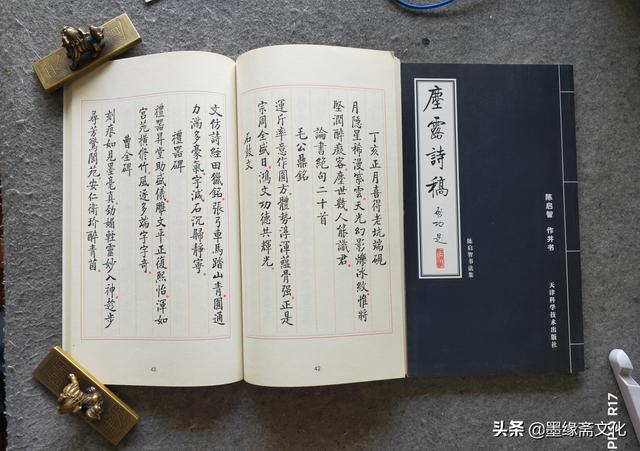 丁亥正月喜得老坑端硯
月隱星稀漫紫雲天光幻影爍冰紋惟將
堅潤醉癡客塵世幾人條識君
論書絕句二十首
毛公鼎銘
運斤率意作圓方體勢淳渾蘊骨强正是
宗周全盛日鴻文功德共輝光
石鼓文
42
文仿詩經田獵銘張弓車馬踏山青圓通
力滿多豪氣字滅石沉歸靜寧
禮器碑
禮器昇堂助盛儀雕文平正復熙怡渾如
宮苑橫脩竹風逐多端字字奇
曹全碑
刻痕如見墨毫真媚靈妙入神趁步
尋芳驚閬苑安仁衛玠醉青茵
43
塵露詩稿
啓功題
陈启智书法集
陈启智 作并书
天津科学技术出版社
R17
头条 @墨缘斋文化